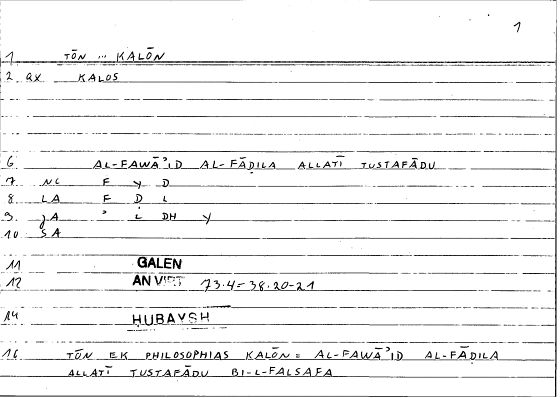 1
1 TŌN ... KALŌN
2 ax KALOS
6 AL-FAWĀʾID AL-FĀḌILA ALLATĪ TUSTAFĀDU
7 NC F Y D
8 LA F Ḍ L
9 JA ʾ L DH Y
10 SA
11 GALEN
12 AN VIRT 73.4 = 38.20-21
14 HUBAYSH
16 TŌN EK PHILOSOPHIAS KALŌN = AL-FAWĀʾID AL-FĀḌILA
ALLATĪ TUSTAFĀDU BI-L-FALSAFA